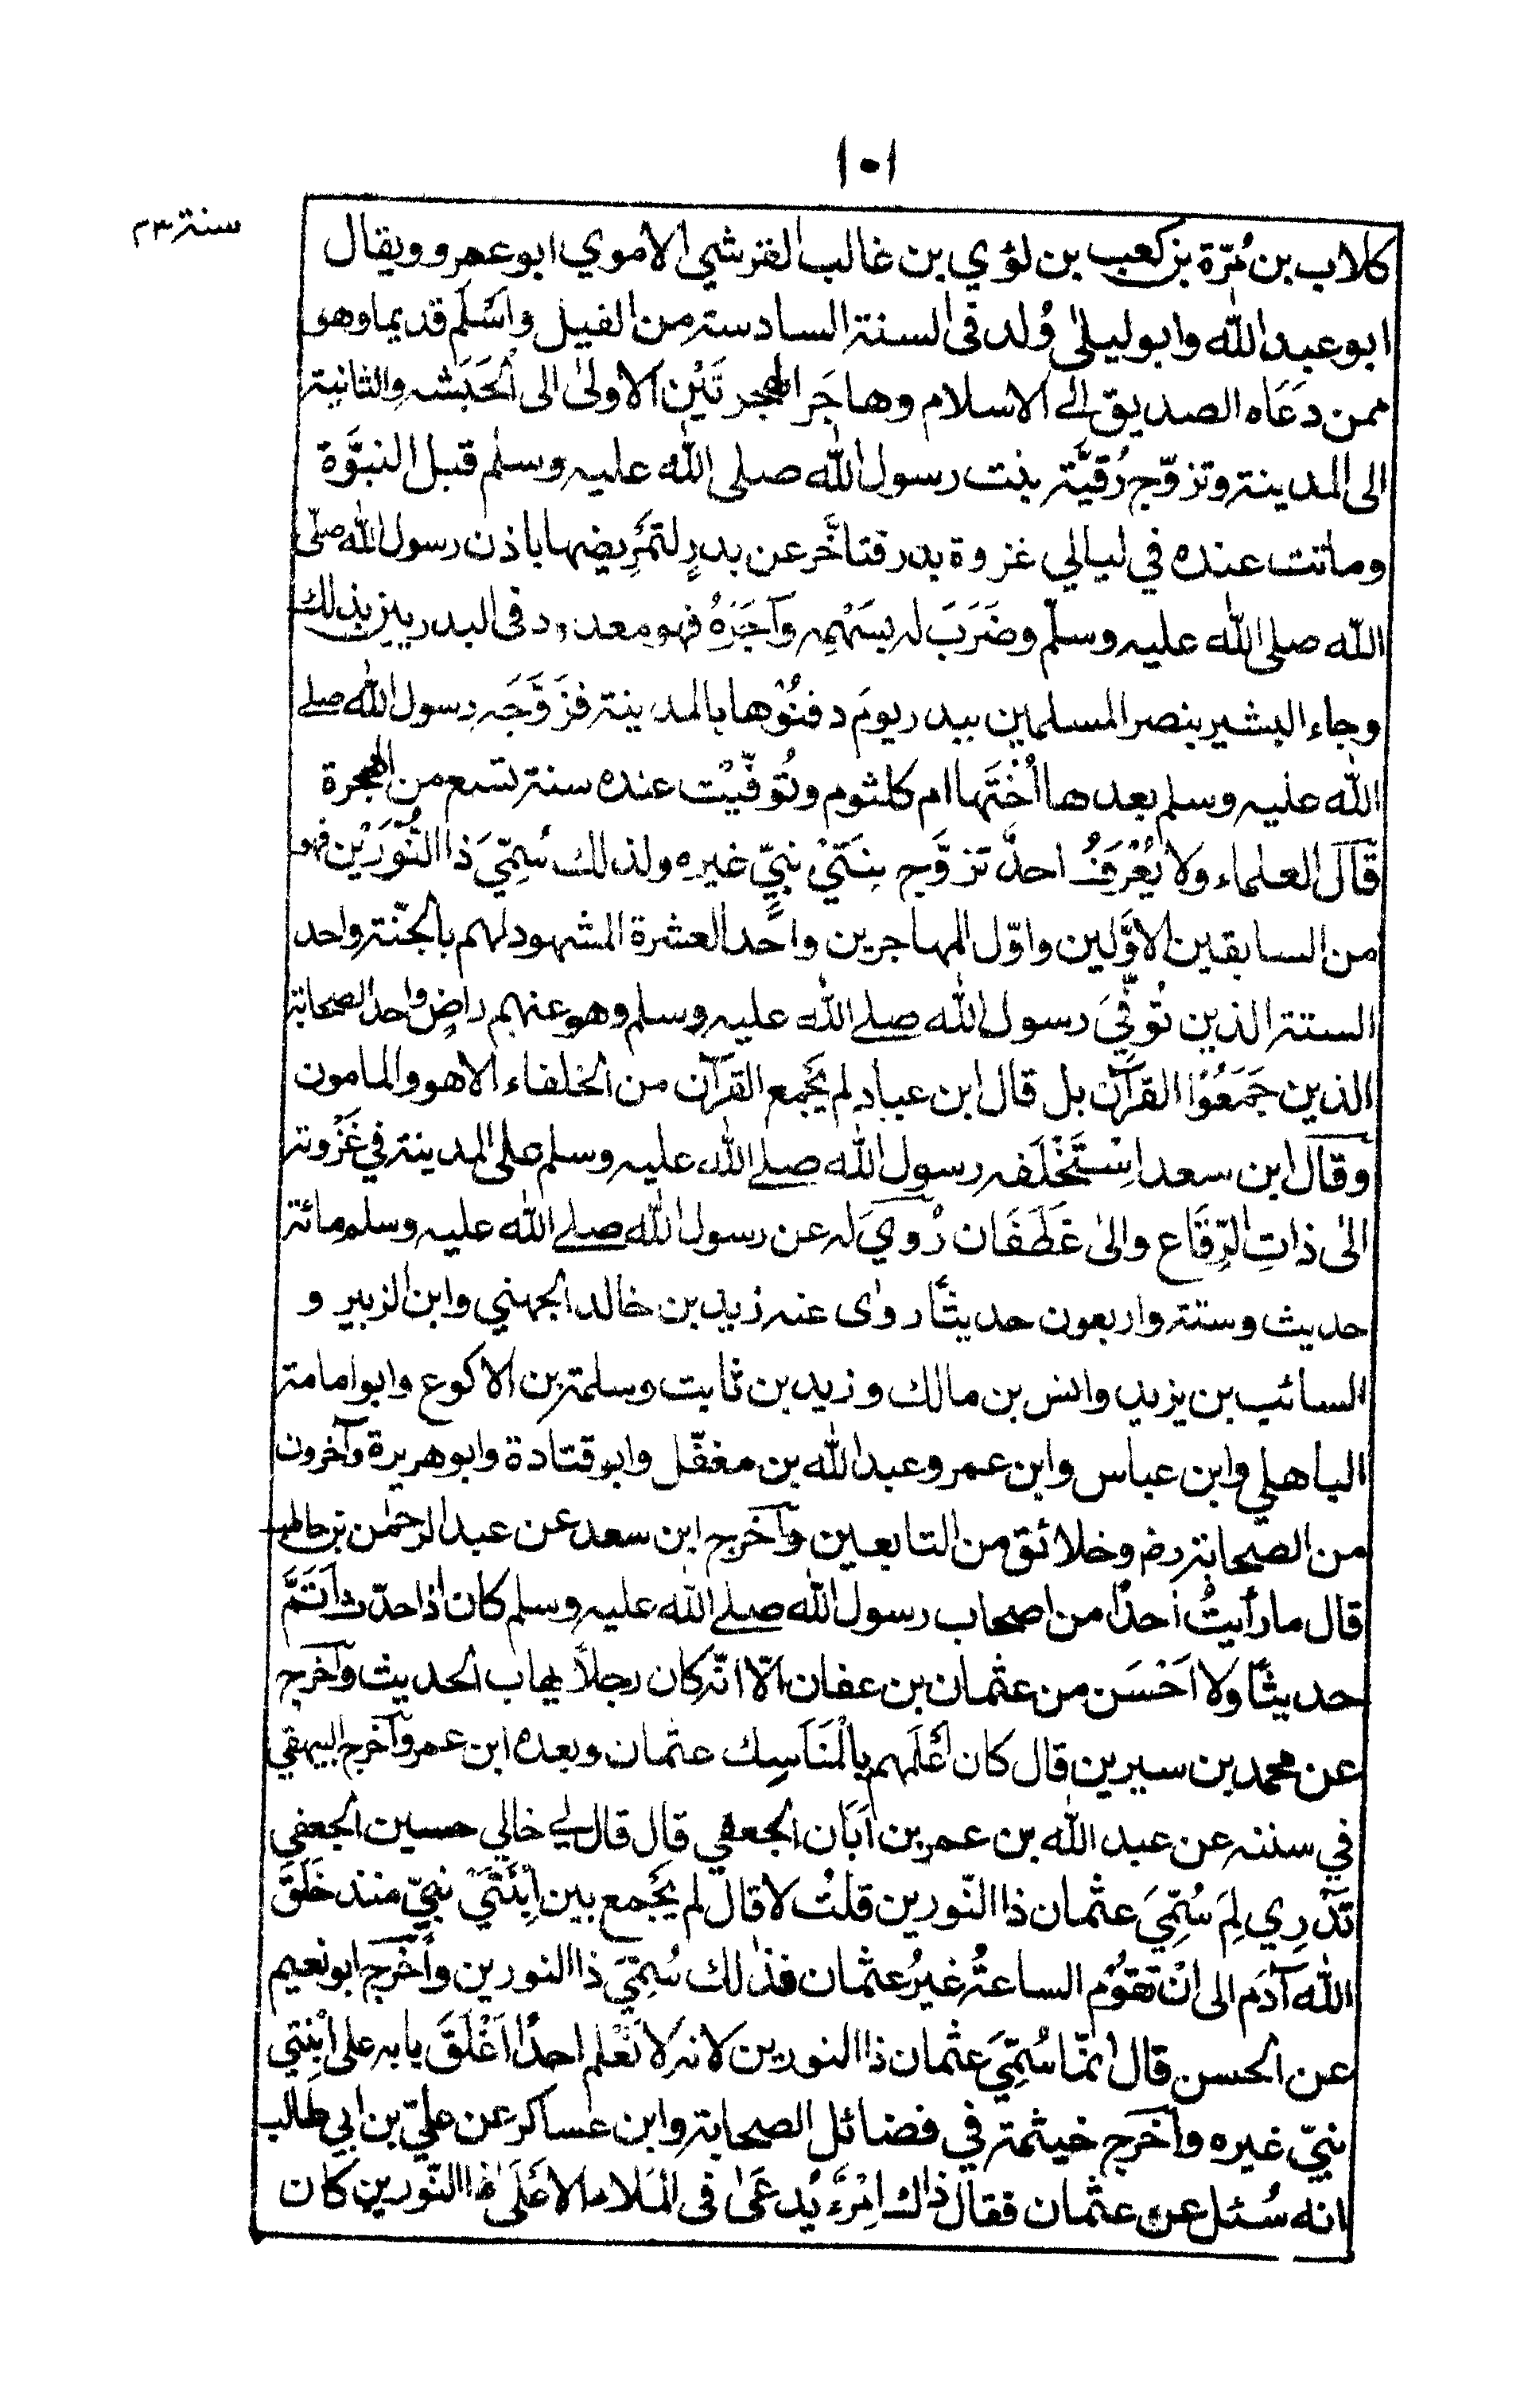 ١٠١
سنة ٢٣
كلاب بن مُرّة بن كعب بن لؤي بن غالب القرشي الاموي ابو عمرو ويقال
ابو عبد الله وابو ليلى وُلد فى السنة السادسة من الفيل واَسْلَم قديما وهو
ممن دَعَاه الصديق الى الاسلام وهاجَر الهجرتَيْن الاولىٰ الى الحَبَشه والثانية
الى المدينة وتزوّج رُقَيَّة بنت رسول الله صلى الله عليه وسلم قبل النبوَّة
وماتت عنده في ليالي غزوة بدر فتاخَّر عن بدرٍ لتمَرِيضها باذن رسول الله صلى
الله صلى الله عليه وسلّم وضَرَبَ له بسَهْمِه وآجَرَهُ فهو معدود فى البدريين بذلك
وجاء البشير بنصر المسلمين ببدر يومَ دفنُوْها بالمدينة فزَوَّجَه رسول الله صلے
الله عليه وسلم بعدها اُخْتَها ام كلثوم وتُوفّيْت عنده سنة تسع من الهجرة
قَالَ العلماء ولا يُعْرَفُ احدٌ تزوَّج بِنتَيْ نبيّ غيره ولذلك سُمِّيَ ذا النُّوْرَيْن فهو
من السابقين الاوَّلين واوّل المهاجرين واَحد العشرة المشهود لهم بالجنّة واحد
الستة الذين تُوفِّيَ رسول الله صلے الله عليه وسلم وهو عنهم راضٍ واحد الصحابة
الذين جَمَعُوْا القرآن بل قال ابن عباد لم يَجمع القرآن من الخلفاء الا هو والمامون
وقال ابن سعد اِسْتَخْلَفه رسول الله صلے الله عليه وسلم على المدينة في غَزْوته
الىٰ ذاتِ الرِّقَاع والىٰ غَطَفَان رُوِيَ له عن رسول الله صلے الله عليه وسلم مائة
حديث وستة واربعون حديثًا روٰى عنه زيد بن خالد الجهني وابن الزبير و
السائب بن يزيد وانس بن مالك وزيد بن ثابت وسلمة بن الاكوع وابو امامة
الباهلي وابن عباس وابن عمر وعبد الله بن مغفّل وابو قتادة وابو هريرة وآخرون
من الصحابة رض وخلائق من التابعين وآخرج ابن سعد عن عبد الرحمٰن بن حاطب
قال ما رأيتُ اَحدًا من اصحاب رسول الله صلے الله عليه وسلم كان اذا حدّث اَتَمَّ
حديثًا ولا اَحْسَن من عثمان بن عفان الّا انّه كان رجلاً يهاب الحديث وآخرج
عن محمد بن سيرين قال كان اَعْلَمهم بالْمَنَاسِك عثمان وبعده ابن عمر وآخرج البيهقي
في سننه عن عبد الله بن عمر بن اَبَان الجعفي قال قال لے خالي حسين الجعفي
تَدْرِي لِمَ سُمِّيَ عثمان ذا النّورين قلتُ لا قال لم يَجمع بين اِبْنَتَيْ نبيّ منذ خَلَقَ
الله آدَم الى اَنْ تقوْم الساعةُ غيرُ عثمان فذٰلك سُمِّيَ ذا النورين وآخرج ابو نعيم
عن الحسن قال انّما سُمِّيَ عثمان ذا النورين لانه لا نَعْلم احدًا اَغْلَقَ بابه على ابْنتي
نبيّ غيره وآخرج خيثمة في فضائل الصحابة وابن عساكر عن عليّ بن ابي طالب
انه سُئل عن عثمان فقال ذاك امْرَءٌ يُدعَىٰ فى المَلاء الاَعْلَىٰ ذا النّورين كان